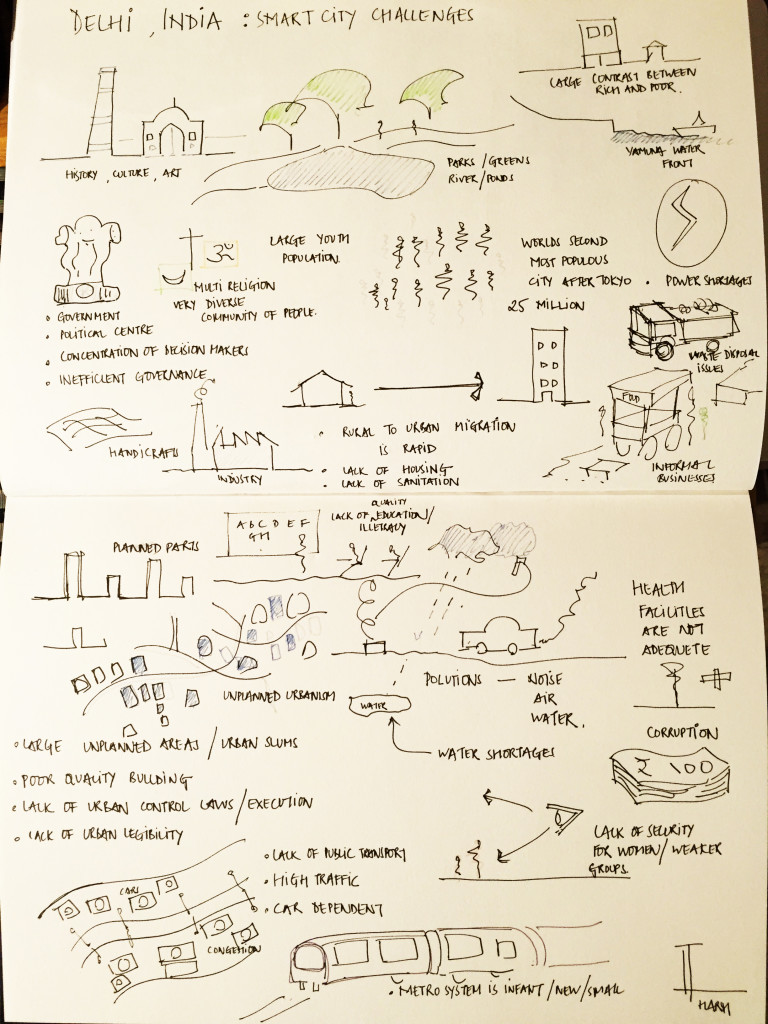 DELHI, INDIA : SMART CITY CHALLENGES
LARGE CONTRAST BETWEEN
RICH AND POOR.
HISTORY, CULTURE, ART
PARKS/GREENS
RIVER/PONDS
YAMUNA WATER
FRONT
ॐ
MULTI RELIGION
VERY DIVERSE
COMMUNITY OF PEOPLE.
LARGE YOUTH
POPULATION.
WORLDS SECOND
MOST POPULOUS
CITY AFTER TOKYO
25 MILLION
• POWER SHORTAGES
• GOVERNMENT
• POLITICAL CENTRE
• CONCENTRATION OF DECISION MAKERS
• INEFFICIENT GOVERNANCE
WASTE DISPOSAL
ISSUES
HANDICRAFTS
INDUSTRY
• RURAL TO URBAN MIGRATION
IS RAPID
• LACK OF HOUSING
• LACK OF SANITATION
FOOD
INFORMAL
BUSINESSES
PLANNED PARTS
A B C D E F
G H
QUALITY
LACK OF EDUCATION/
ILLETRACY
HEALTH
FACILITIES
ARE NOT
ADEQUETE
UNPLANNED URBANISM
POLUTIONS — NOISE
AIR
WATER.
WATER
WATER SHORTAGES
CORRUPTION
₹ 100
• LARGE UNPLANNED AREAS/URBAN SLUMS
• POOR QUALITY BUILDING
• LACK OF URBAN CONTROL LAWS/EXECUTION
• LACK OF URBAN LEGIBILITY
LACK OF SECURITY
FOR WOMEN/WEAKER
GROUPS.
• LACK OF PUBLIC TRANSPORT
• HIGH TRAFFIC
• CAR DEPENDENT
CARS
CONGETION
• METRO SYSTEM IS INFANT/NEW/SMALL